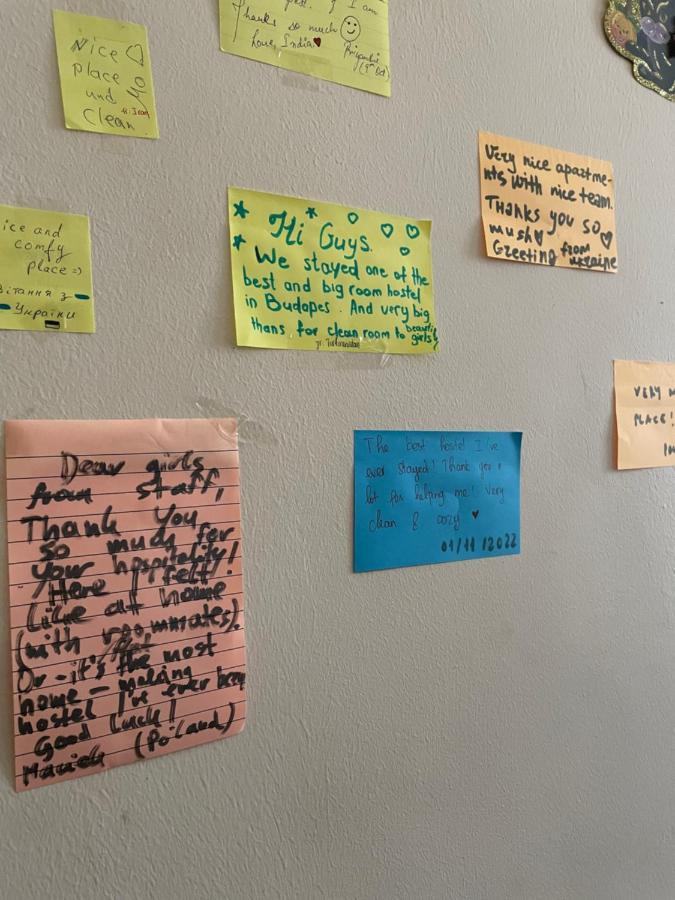 Nice ♡
place
und
clean
if I am
Thanks so much ☺
love, India ♥
Priyanki
(9th Oct)
Very nice apartme-
nts with nice team.
THANKS YOU SO ♡
mush ♡
Greeting from
ukraine
ice and
comfy
place =)
Вітання з
України
Hi Guys.
We stayed one of the
best and big room hostel
in Budapes. And very big
thans, for clean room to beautifu
girls
VERY
PLACE!
The best hostel I've
ever stayed! Thank you a
lot for helping me! Very
clean & cozy ♥
01/11/2022
Dear girls
from staff,
Thank you
so much for
your hospitality!
Here I felt
like at home
(with roommates).
Or - it's the most
home-making
hostel I've ever been
Good luck!
Maciek (Poland)